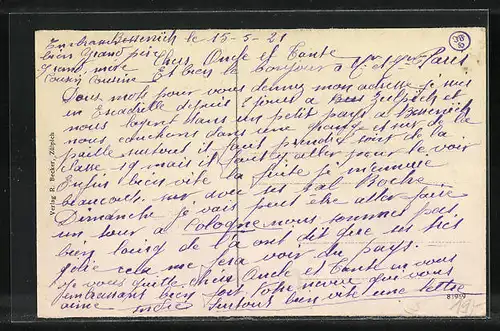 le 15-5-21
bien Grand père
Grand mère Chers Oncle et Tante
Cousin Cousine Et bien le bonjour a
Deux mots pour vous donner mon adresse je suis
en Escadrille depuis 2 jours a Zulpich et
nous logent dans un petit pays a Bessenich
nous couchons dans une grange et sur de la
paille surtout il faut prendre soin de la
classe 19 mais il faut y aller pour le voir
Enfin bien vite la fuite je m'ennuie
beaucoup sur ses sal Boche
Dimanche je vais peut être aller faire
un tour a Cologne nous sommes pas
bien loing de la ont dit que ses très
jolie cela me fera voir du pays.
je vous quitte chers Oncle et Tante en vous
embrassant bien fort votre neveu qui vous
aime surtout bien vite une lettre
Verlag R. Becker, Zülpich
81959